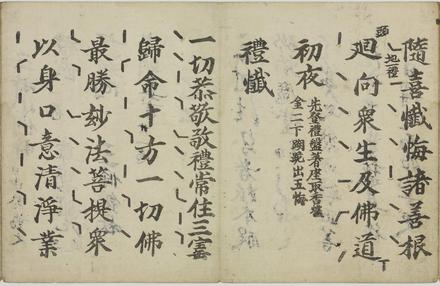 隨喜懺悔諸善根
廻向衆生及佛道
初夜
先登禮盤著座取香爐
金二下
禮懺
一切恭敬敬禮常住三寳
歸命十方一切佛
最勝妙法菩提衆
以身口意清淨業